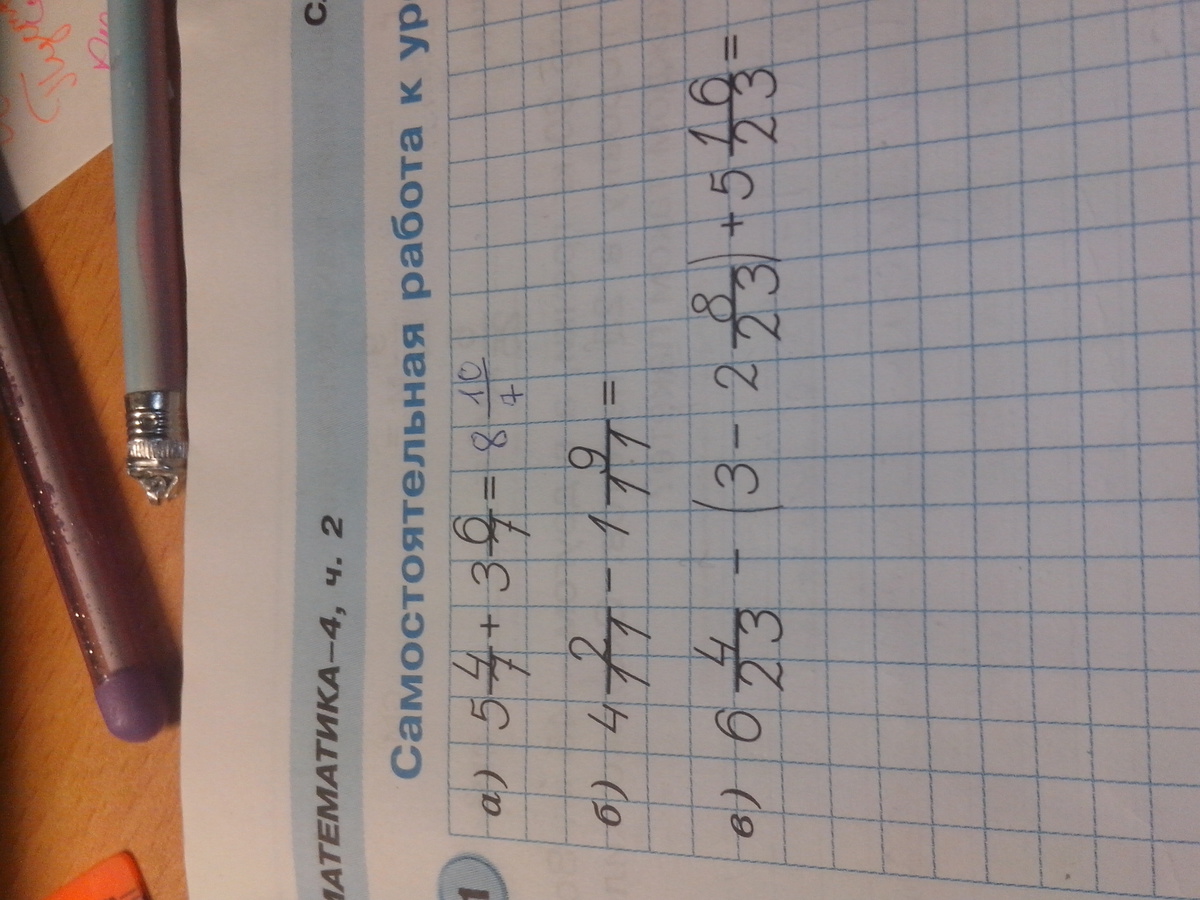 МАТЕМАТИКА–4, ч. 2
Самостоятельная работа к ур
1
а) 5 4/7 + 3 6/7 = 8 10/7
б) 4 2/11 - 1 9/11 =
в) 6 4/23 - (3 - 2 8/23) + 5 16/23 =